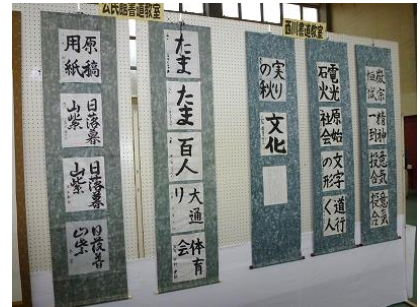 公民館書道教室
西川書道教室
原稿
用紙
日落暮
山紫
日落暮
山紫
日落暮
山紫
たま
たま
百人
大通
り
体育
会
実り
の秋
文化
電光
石火
原始
社会
文字
の形
道行
く人
厳寒
精神
一到
意気
投合
意気
投合